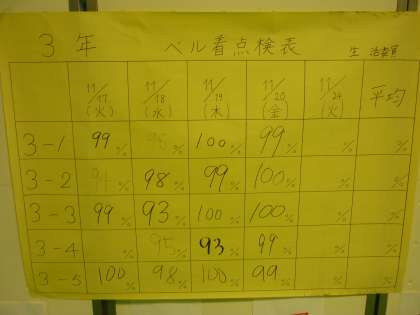 3年 ベル着点検表 生活委員
11/17(火) 11/18(水) 11/19(木) 11/20(金) 11/24(火) 平均
3-1 99% 98% 100% 99% % %
3-2 94% 98% 99% 100% % %
3-3 99% 93% 100% 100% % %
3-4 % 95% 93% 99% % %
3-5 100% 98% 100% 99% % %